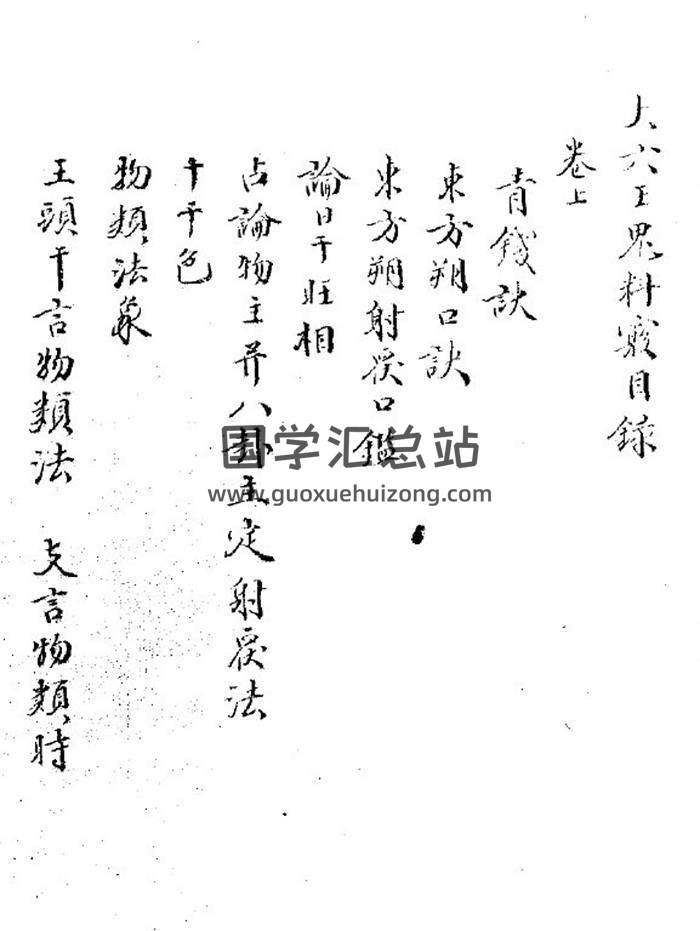 大六壬鬼料竅目錄
卷上
青錢訣
東方朔口訣
東方朔射覆口鑑
論日干旺相
占論物主并八卦五定射覆法
十干色
物類法象
王頭干言物類法 支言物類時
国学汇总站
www.guoxuehuizong.com